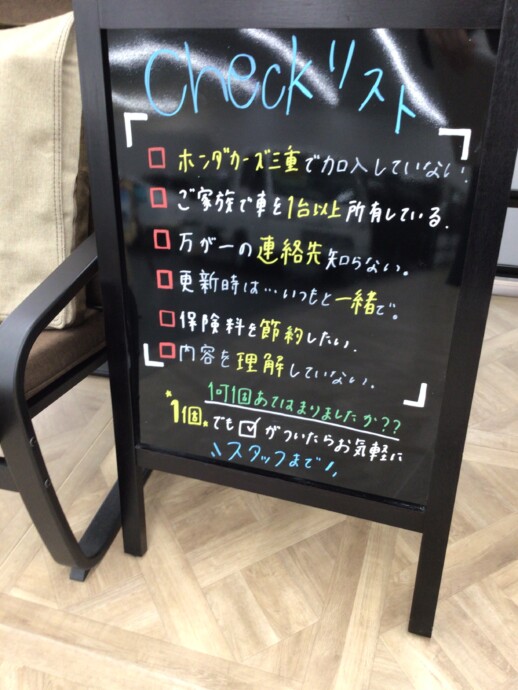 Checkリスト
□ ホンダカーズ三重で加入していない.
□ ご家族で車を1台以上所有している.
□ 万が一の連絡先知らない。
□ 更新時は…いつもと一緒で。
□ 保険料を節約したい.
□ 内容を理解していない.
何個あてはまりましたか??
1個でも☑がついたらお気軽に
\\スタッフまで//